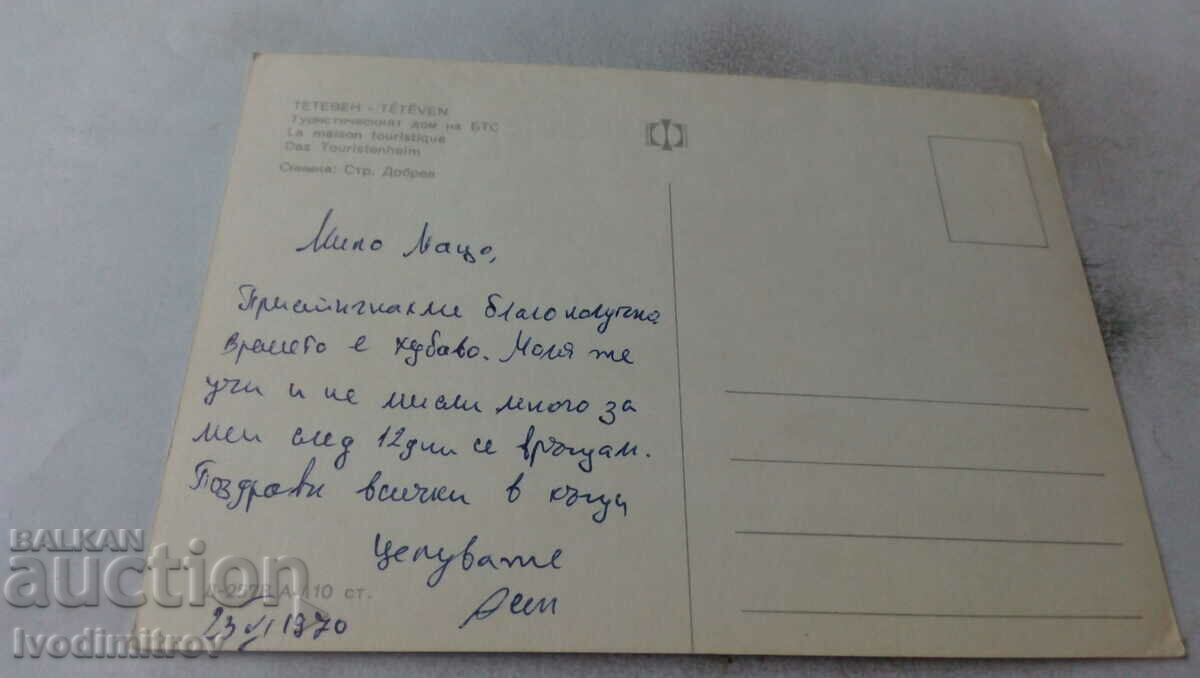 ТЕТЕВЕН - TÉTÉVEN
Туристическият дом на БТС
La maison touristique
Das Touristenheim
Снимка: Стр. Добрев
Мило Мацо,
Пристигнахме благополучно
времето е хубаво. Моля те
учи и не мисли много за
мен след 12 дни се връщам.
Поздрави всички в къщи
Целувам те
Асен
А 10 ст.
23 VI 1970
BALKAN
auction
Ivodimitrov